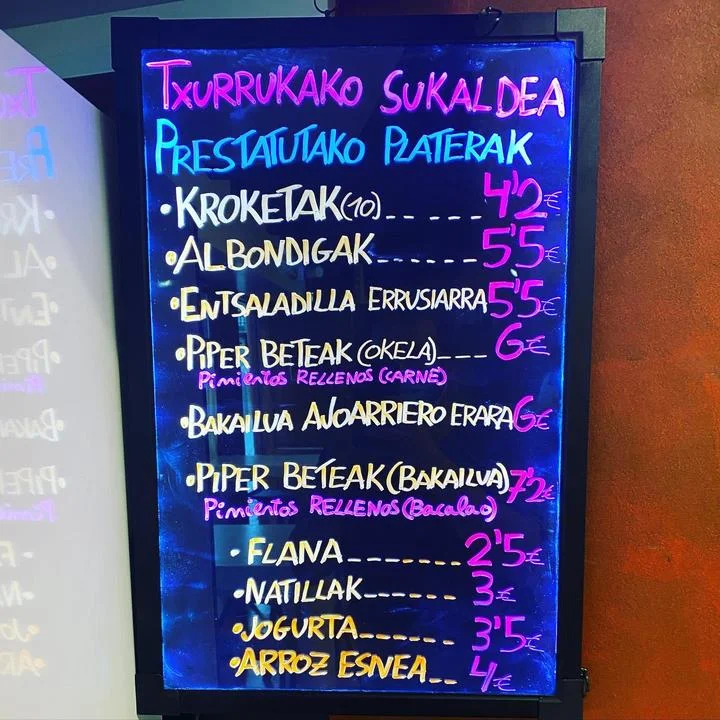 TXURRUKAKO SUKALDEA
PRESTATUTAKO PLATERAK
•KROKETAK(10)_ _ _ _ _ 4'2€
•ALBONDIGAK_ _ _ _ _ _ 5'5€
•ENTSALADILLA ERRUSIARRA 5'5€
•PIPER BETEAK (OKELA)_ _ _ 6€
PIMIENTOS RELLENOS (CARNE)
•BAKAILUA AJOARRIERO ERARA 6€
•PIPER BETEAK (BAKAILUA) 7'2€
PIMIENTOS RELLENOS (Bacalao)
•FLANA_ _ _ _ _ _ _ _ 2'5€
•NATILLAK_ _ _ _ _ _ 3€
•JOGURTA_ _ _ _ _ _ 3'5€
•ARROZ ESNEA_ _ 4€